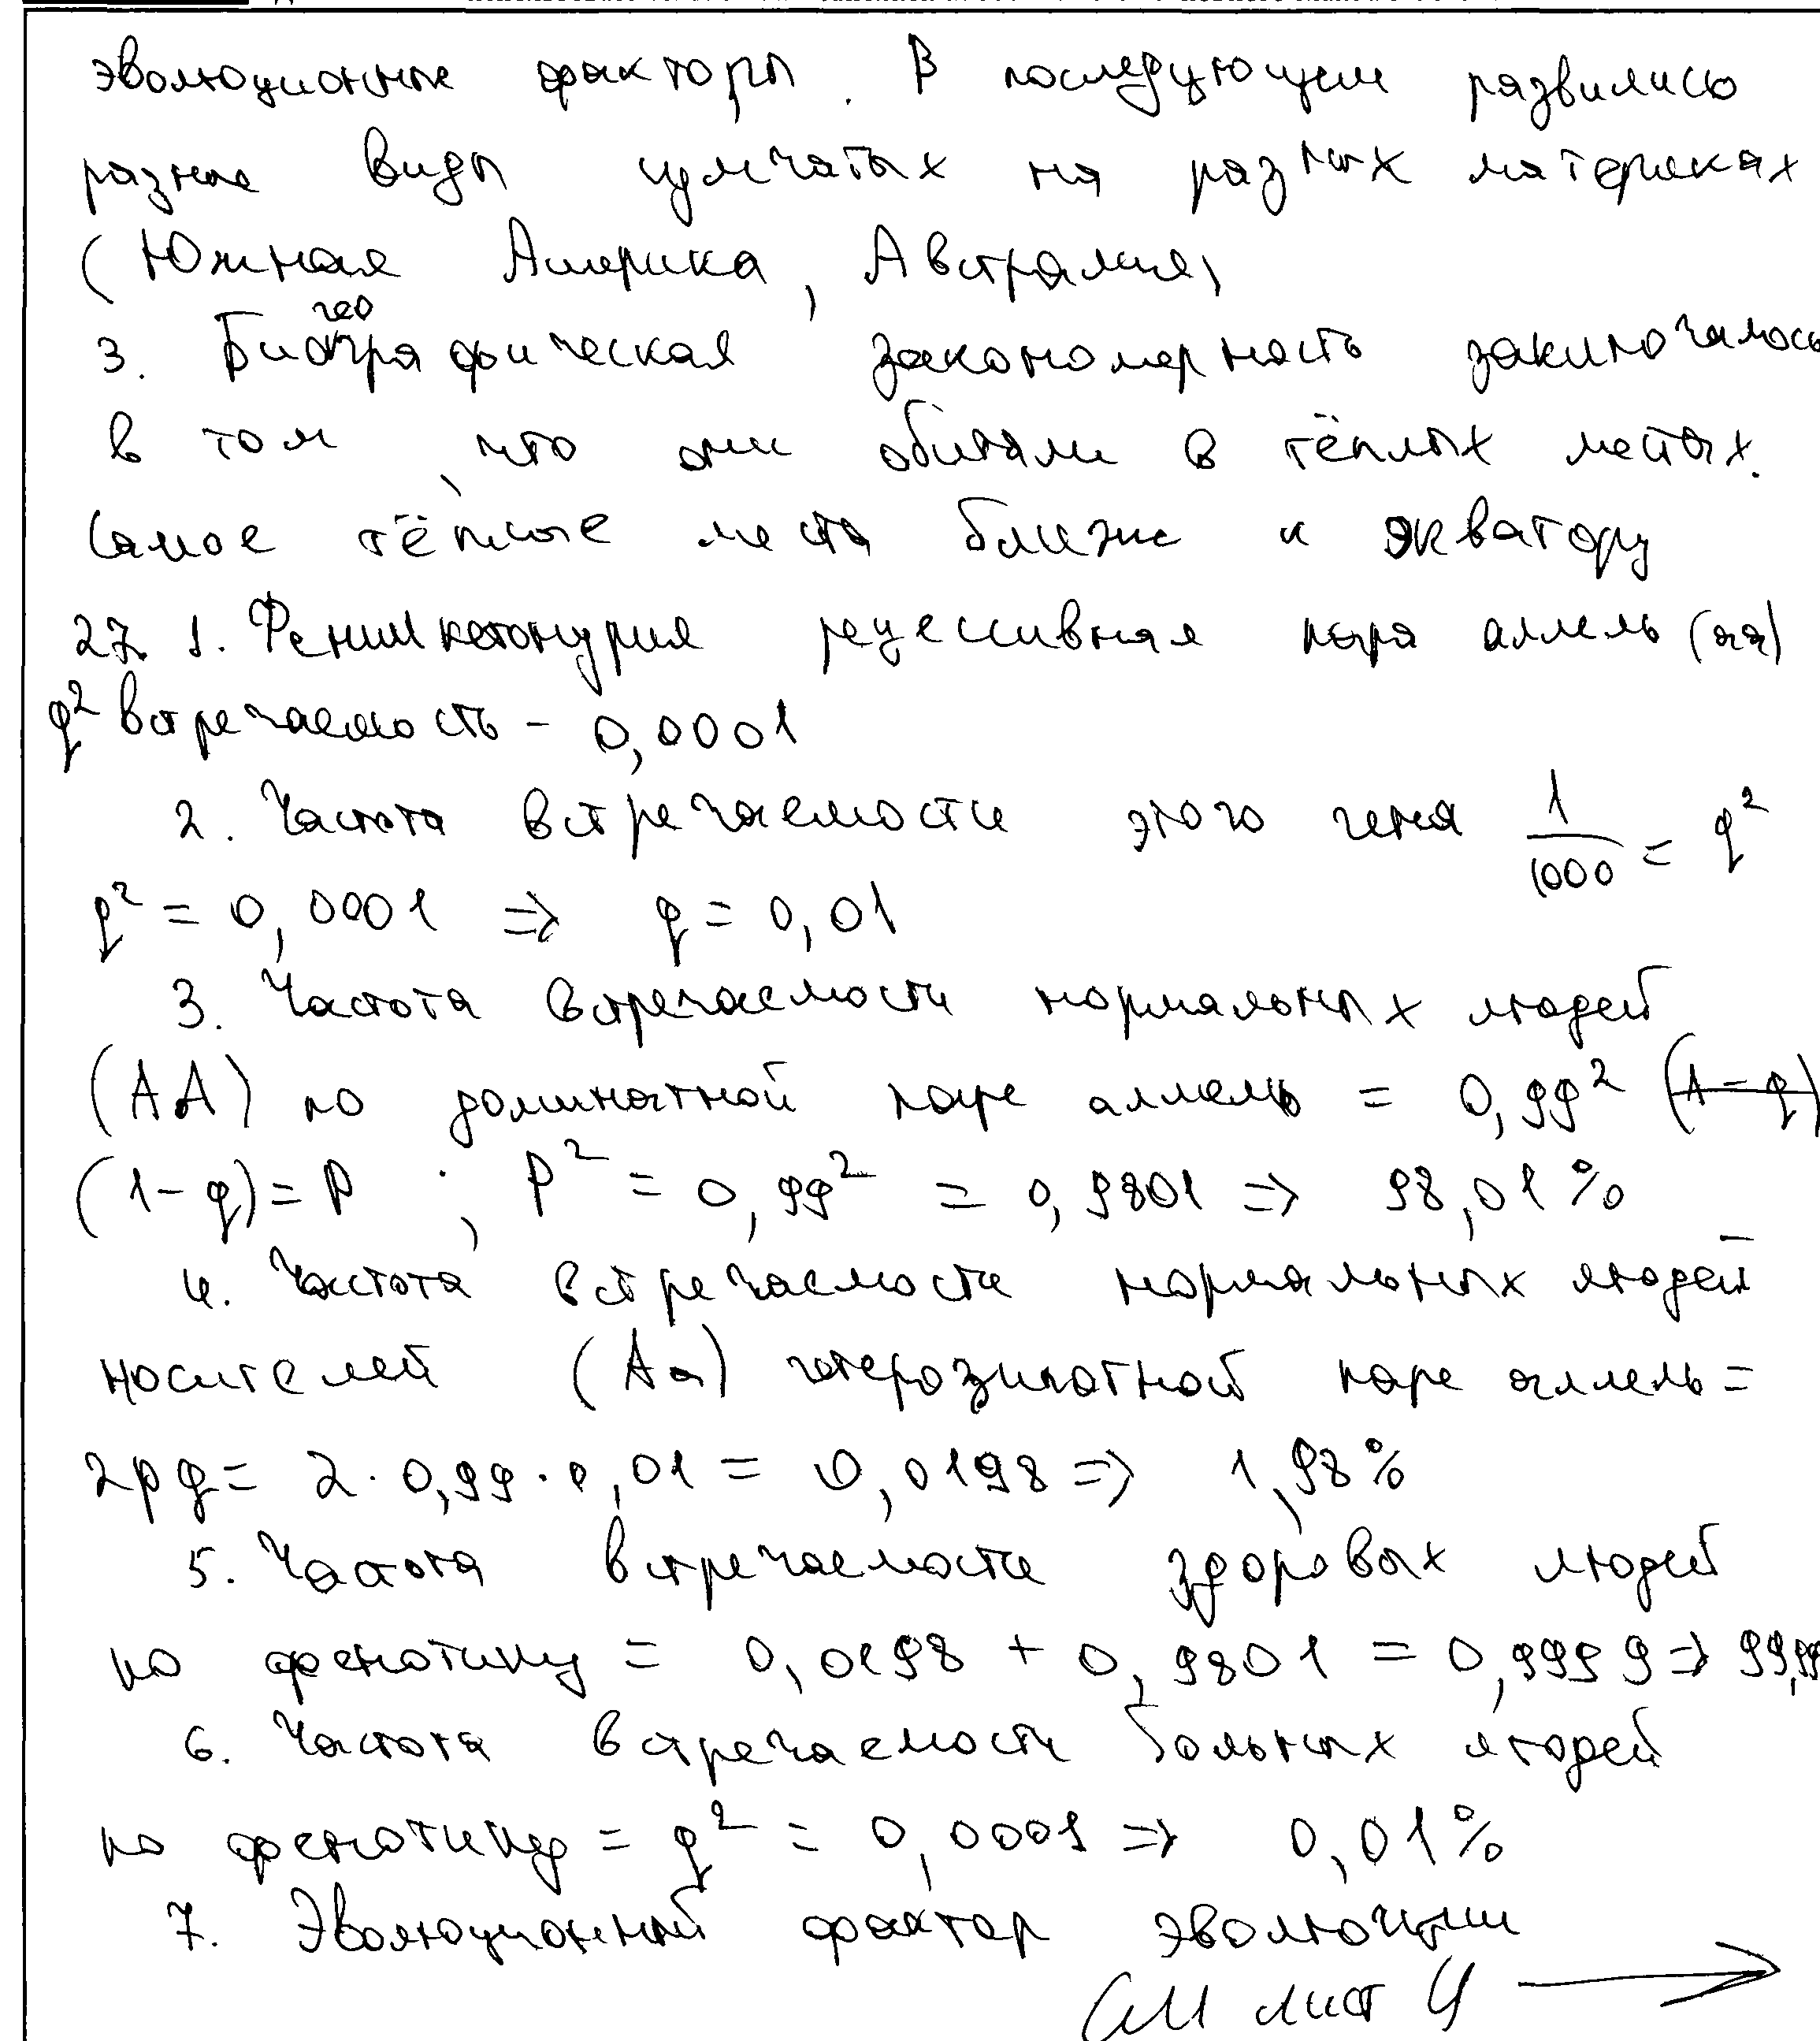 эволюционные факторы. В последующем развились
разные виды сумчатых на разных материках
(Южная Америка, Австралия)
3. Биогеографическая закономерность заключалось
в том, что они обитали в тёплых местах.
Самое тёплые места ближе к экватору
27. 1. Фенилкетонурия рецессивная пара аллель (аа)
q² встречаемость - 0,0001
2. Частота встречаемости этого гена 1/1000 = q²
q² = 0,0001 => q = 0,01
3. Частота встречаемости нормальных людей
(АА) по доминатной паре аллель = 0,99² (1-q)
(1-q)=p ; p² = 0,99² = 0,9801 => 98,01%
4. Частота встречаемости нормальных людей
носителей (Аа) гетерозиготной паре аллель =
2pq = 2·0,99·0,01 = 0,0198 => 1,98%
5. Частота встречаемости здоровых людей
по фенотипу = 0,0198 + 0,9801 = 0,9999 => 99,99
6. Частота встречаемости больных людей
по фенотипу = q² = 0,0001 => 0,01%
7. Эволюционный фактор эволюции
см лист 4 →